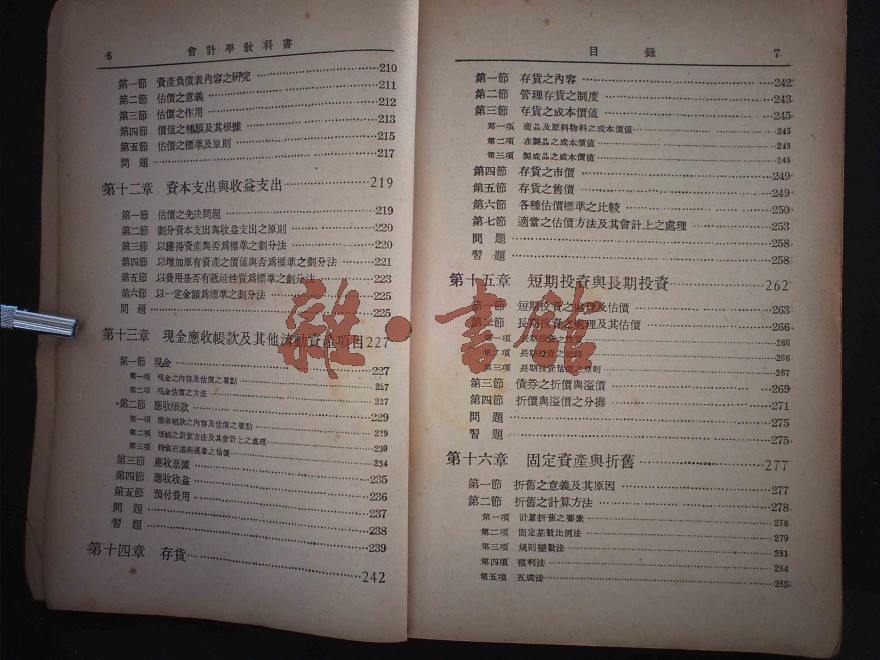 6 會計學教科書
第一節 資產負債表內容之研究 210
第二節 估價之意義 211
第三節 估價之作用 212
第四節 價值之種類及其根據 213
第五節 估價之標準及原則 215
問題 217
第十二章 資本支出與收益支出 219
第一節 估價之先決問題 219
第二節 劃分資本支出與收益支出之原則 220
第三節 以獲得資產與否爲標準之劃分法 220
第四節 以增加原有資產之價值與否爲標準之劃分法 221
第五節 以費用是否有遞延性質爲標準之劃分法 223
第六節 以一定金額爲標準之劃分法 225
問題 225
第十三章 現金應收帳款及其他流動資產項目 227
第一節 現金 227
第一項 現金之內容及估價之要點 227
第二項 現金估價之方法 227
第二節 應收帳款 229
第一項 應收帳款之內容及估價之要點 229
第二項 壞帳之計算方法及其會計上之處理 230
第三項 銷貨折讓與運費之估價 234
第三節 應收票據 235
第四節 應收收益 236
第五節 預付費用 237
問題 238
習題 239
第十四章 存貨 242
目錄 7
第一節 存貨之內容 242
第二節 管理存貨之制度 243
第三節 存貨之成本價值 245
第一項 商品及原料物料之成本價值 245
第二項 在製品之成本價值 248
第三項 製成品之成本價值 248
第四節 存貨之市價 249
第五節 存貨之售價 249
第六節 各種估價標準之比較 250
第七節 適當之估價方法及其會計上之處理 253
問題 258
習題 258
第十五章 短期投資與長期投資 262
第一節 短期投資之處理及估價 263
第二節 長期投資之處理及其估價 266
第一項 長期投資之 266
第二項 長期投資之 266
第三項 長期投資估價之原則 268
第三節 債券之折價與溢價 269
第四節 折價與溢價之分攤 271
問題 275
習題 275
第十六章 固定資產與折舊 277
第一節 折舊之意義及其原因 277
第二節 折舊之計算方法 278
第一項 計算折舊之要素 278
第二項 固定基數比例法 279
第三項 規則變數法 281
第四項 複利法 284
第五項 五成法 285
雜·書館